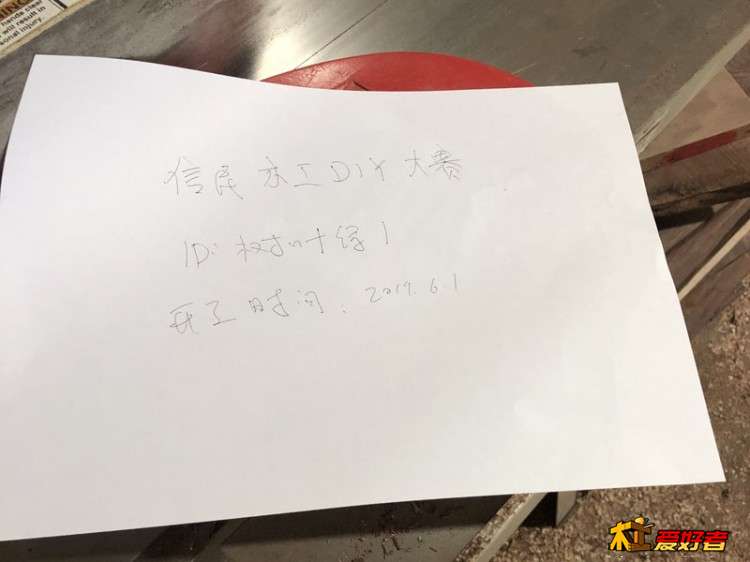 handle clear
will result in
sonal injury.
信民木工DIY大赛
ID: 树叶绿1
开工时间: 2019.6.1
木工爱好者